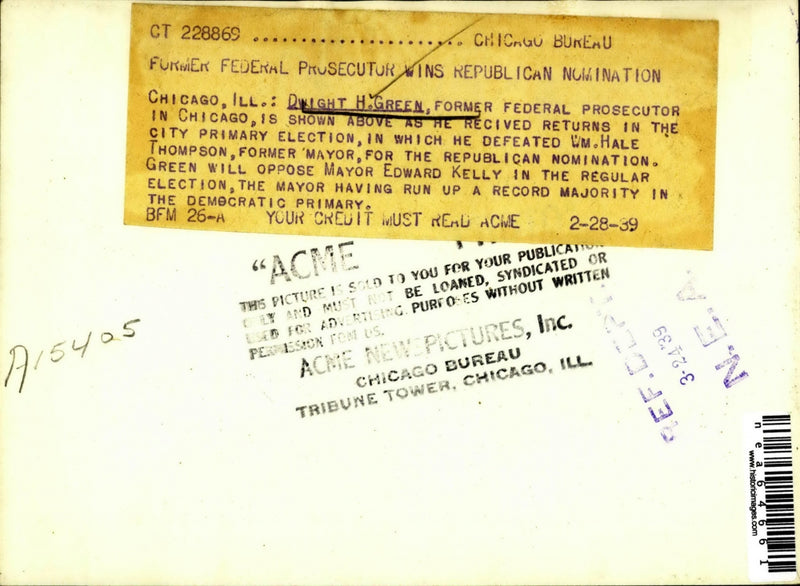 CT 228869 ........................ CHICAGO BUREAU
FORMER FEDERAL PROSECUTOR WINS REPUBLICAN NOMINATION
CHICAGO, ILL.: DWIGHT H. GREEN, FORMER FEDERAL PROSECUTOR
IN CHICAGO, IS SHOWN ABOVE AS HE RECIVED RETURNS IN THE
CITY PRIMARY ELECTION, IN WHICH HE DEFEATED WM. HALE
THOMPSON, FORMER MAYOR, FOR THE REPUBLICAN NOMINATION.
GREEN WILL OPPOSE MAYOR EDWARD KELLY IN THE REGULAR
ELECTION, THE MAYOR HAVING RUN UP A RECORD MAJORITY IN
THE DEMOCRATIC PRIMARY.
BFM 26-A YOUR CREDIT MUST READ ACME 2-28-39
"ACME
THIS PICTURE IS SOLD TO YOU FOR YOUR PUBLICATION
ONLY AND MUST NOT BE LOANED, SYNDICATED OR
USED FOR ADVERTISING PURPOSES WITHOUT WRITTEN
PERMISSION FROM US.
ACME NEWSPICTURES, Inc.
CHICAGO BUREAU
TRIBUNE TOWER, CHICAGO, ILL.
A15405
REF. DEPT.
3-24-39
N. E. A.
nea64661
www.historicimages.com